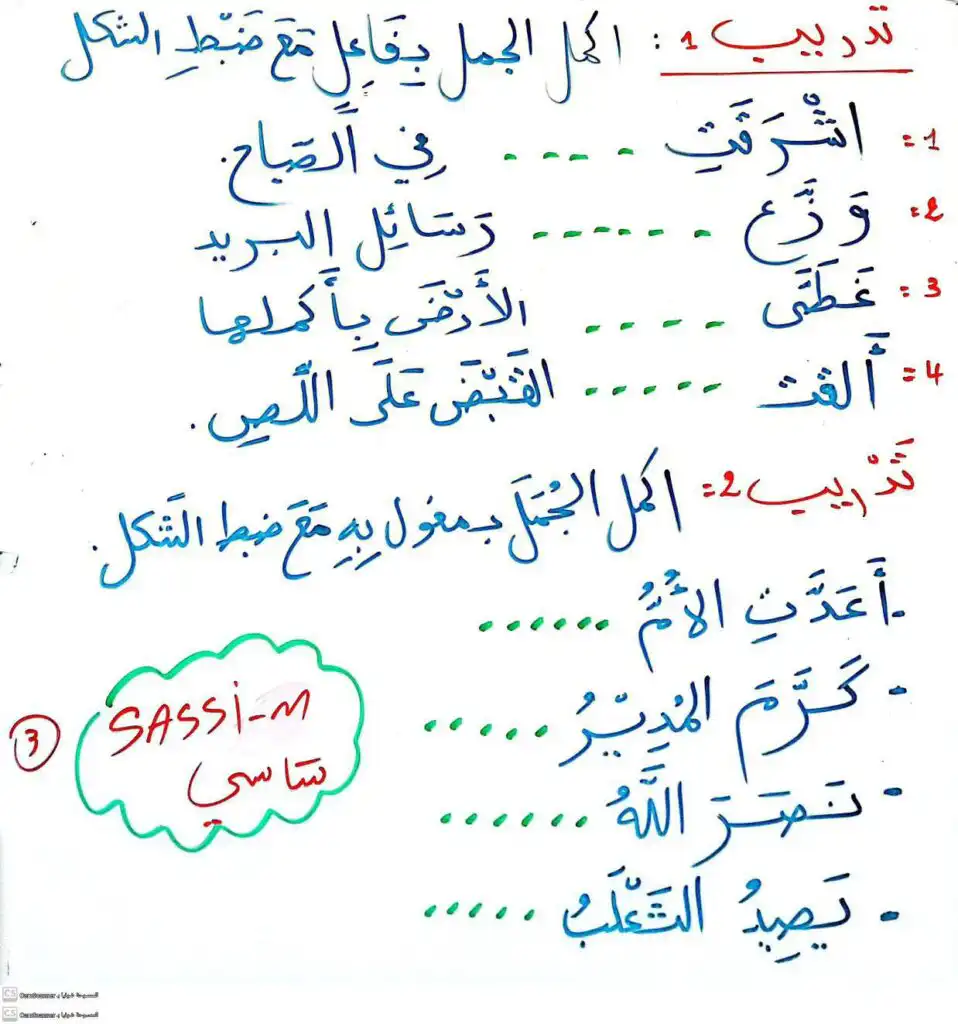 تدريب 1: اكمل الجمل بِفَاعِلٍ مَعَ ضَبْطِ الشكل
1= اشْرَقَتِ .... فِي الصَّبَاح.
2= وَزَّع ...... رَسَائِل البريد
3= غَطَّى .... الأَرْضَ بِأَكملها
4= أَلقت ..... القَبْضَ عَلَى اللِّصِ.
تَدْريب 2= اكمل الجُمَلَ بمفعول بِهِ مَعَ ضبط الشَكل.
- أَعَدَّتِ الأُمُّ ......
- كَرَّمَ المُدِيْرُ .....
- نَصَرَ اللَّهُ ......
- يَصِيدُ الثَّعْلَبُ .....
SASSi-M
ساسي
3
CS CamScanner الممسوحة ضوئيا بـ
CS CamScanner الممسوحة ضوئيا بـ